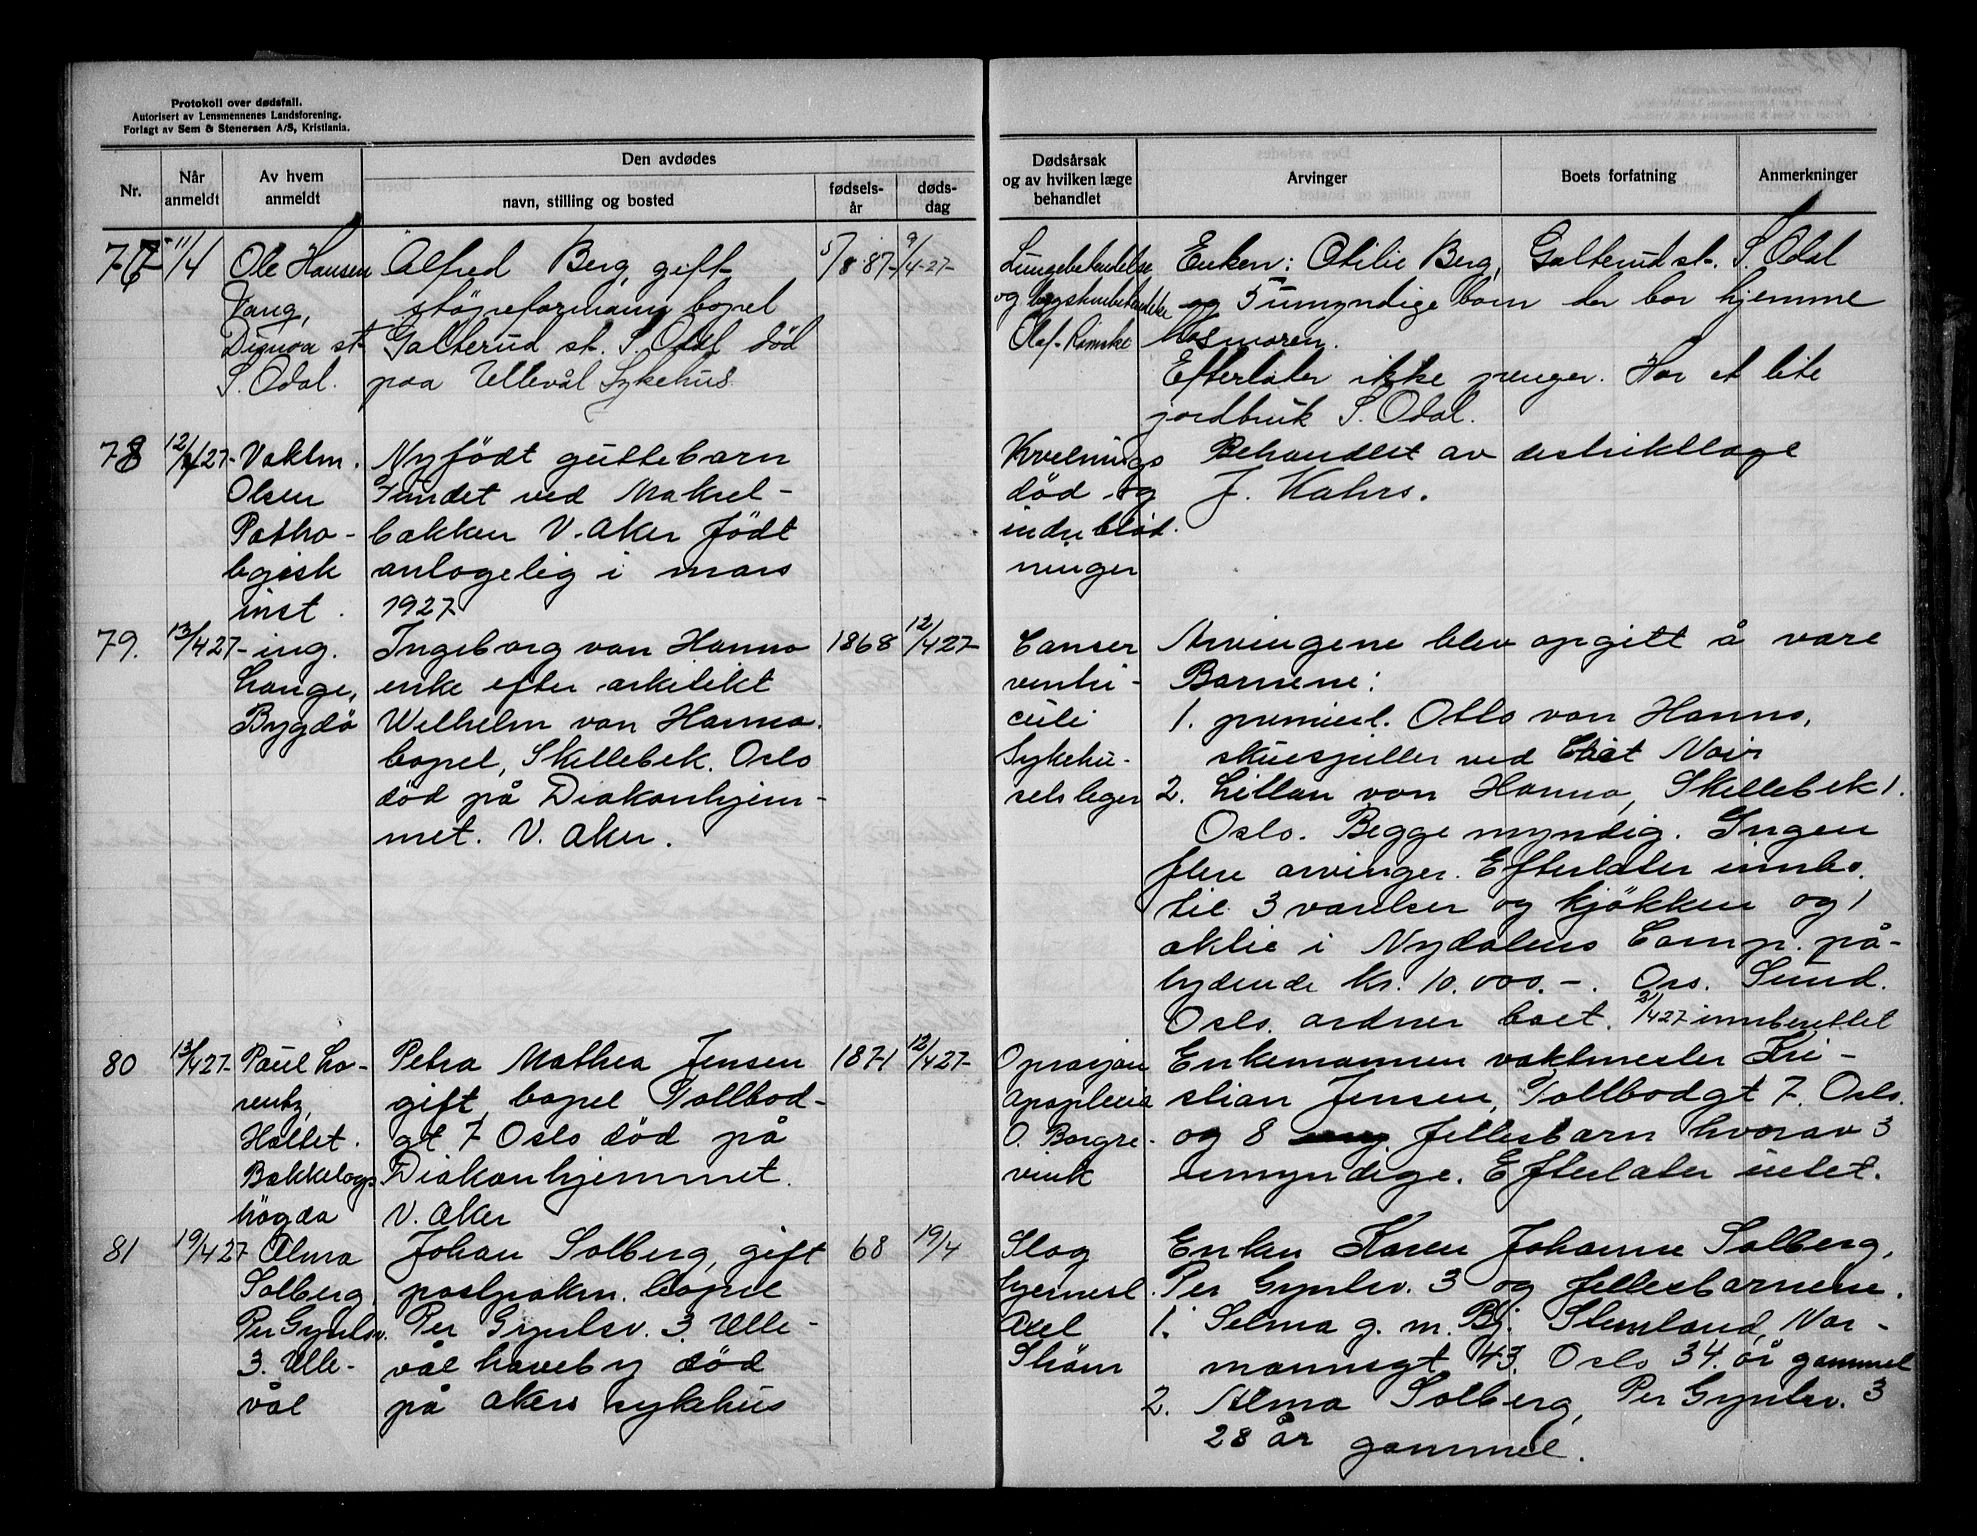 Protokoll over dødsfall.
Autorisert av Lensmennenes Landsforening.
Forlagt av Sem & Stenersen A/S, Kristiania.
Nr.
Når anmeldt
Av hvem anmeldt
Den avdødes
navn, stilling og bosted
fødsels-år
døds-dag
Dødsårsak og av hvilken læge behandlet
Arvinger
Boets forfatning
Anmerkninger
77 11/4
Ole Hansen
Vang,
st
S. Odal.
Alfred Berg, gift
bopel
Galterud st. S. Odal død
paa Ullevål Sykehus.
5/8-87- 9/4-27-
Lungebetendelse
og
Olaf
Enken: Otilie Berg, Galterud st. S. Odal
og 5 umyndige barn der bor hjemme
hos moren.
Efterlater ikke penger. Har et lite
jordbruk S. Odal.
78 12/4 27-
Vaktm.
Olsen
Patho-
logisk
inst.
Nyfödt guttebarn
Fundet ved Makrel-
bakken V. Aker födt
antagelig i mars
1927
Kvelnings
död og
indre blöd.
ninger
Behandlet av distriktlæge
J. Kahrs.
79. 13/4 27-
ing.
Lange,
Bygdö
Ingeborg von Hanno
enke efter arkitekt
Wilhelm von Hanno.
bopel, Skillebek. Oslo
död på Diakonhjem-
met. V. Aker.
1868 12/4 27-
Canser
ventri-
culi
Sykehu-
sets leger
Arvingene blev opgitt å være
Barnene:
1. premierl. Otto von Hanno,
skuespiller ved Chat Noir
2. Lillan von Hanno, Skillebek 1.
Oslo. Begge myndig. Ingen
flere arvinger. Efterlater innbo.
til 3 værelser og kjøkken og 1
aktie i Nydalens Comp. på-
lydende kr. 10.000.-. Ors. Sund.
Oslo. ordner boet. 21/4 27 innberettet
80 13/4 27-
Paul Lo-
rentz,
Holtet.
Bekkelags
högda
Petra Mathea Jensen
gift, bopel Tollbod-
gt 7 Oslo död på
Diakonhjemmet.
V. Aker
1871 12/4 27-
Oprasjon
Apoplexia
O. Borgre-
vink
Enkemannen vaktmester Kri-
stian Jensen, Tollbodgt 7. Oslo.
og 8 fellesbarn hvorav 3
umyndige. Efterlater intet.
81 19/4 27
Alma
Solberg
Per Gyntsv.
3. Ulle-
vål
Johan Solberg, gift
postpakm. bopel
Per Gyntsv. 3. Ulle-
vål haveby död
på Akers sykehus
68 19/4
Slag
hjernesl.
Axel
Ström
Enken Karen Johanne Solberg,
Per Gyntsv. 3 og fellesbarnene.
1. Selma g. m. Bj. Stenland, Nor-
mannsgt 43. Oslo 34. år gammel
2. Alma Solberg, Per Gyntsv. 3
28 år gammel.